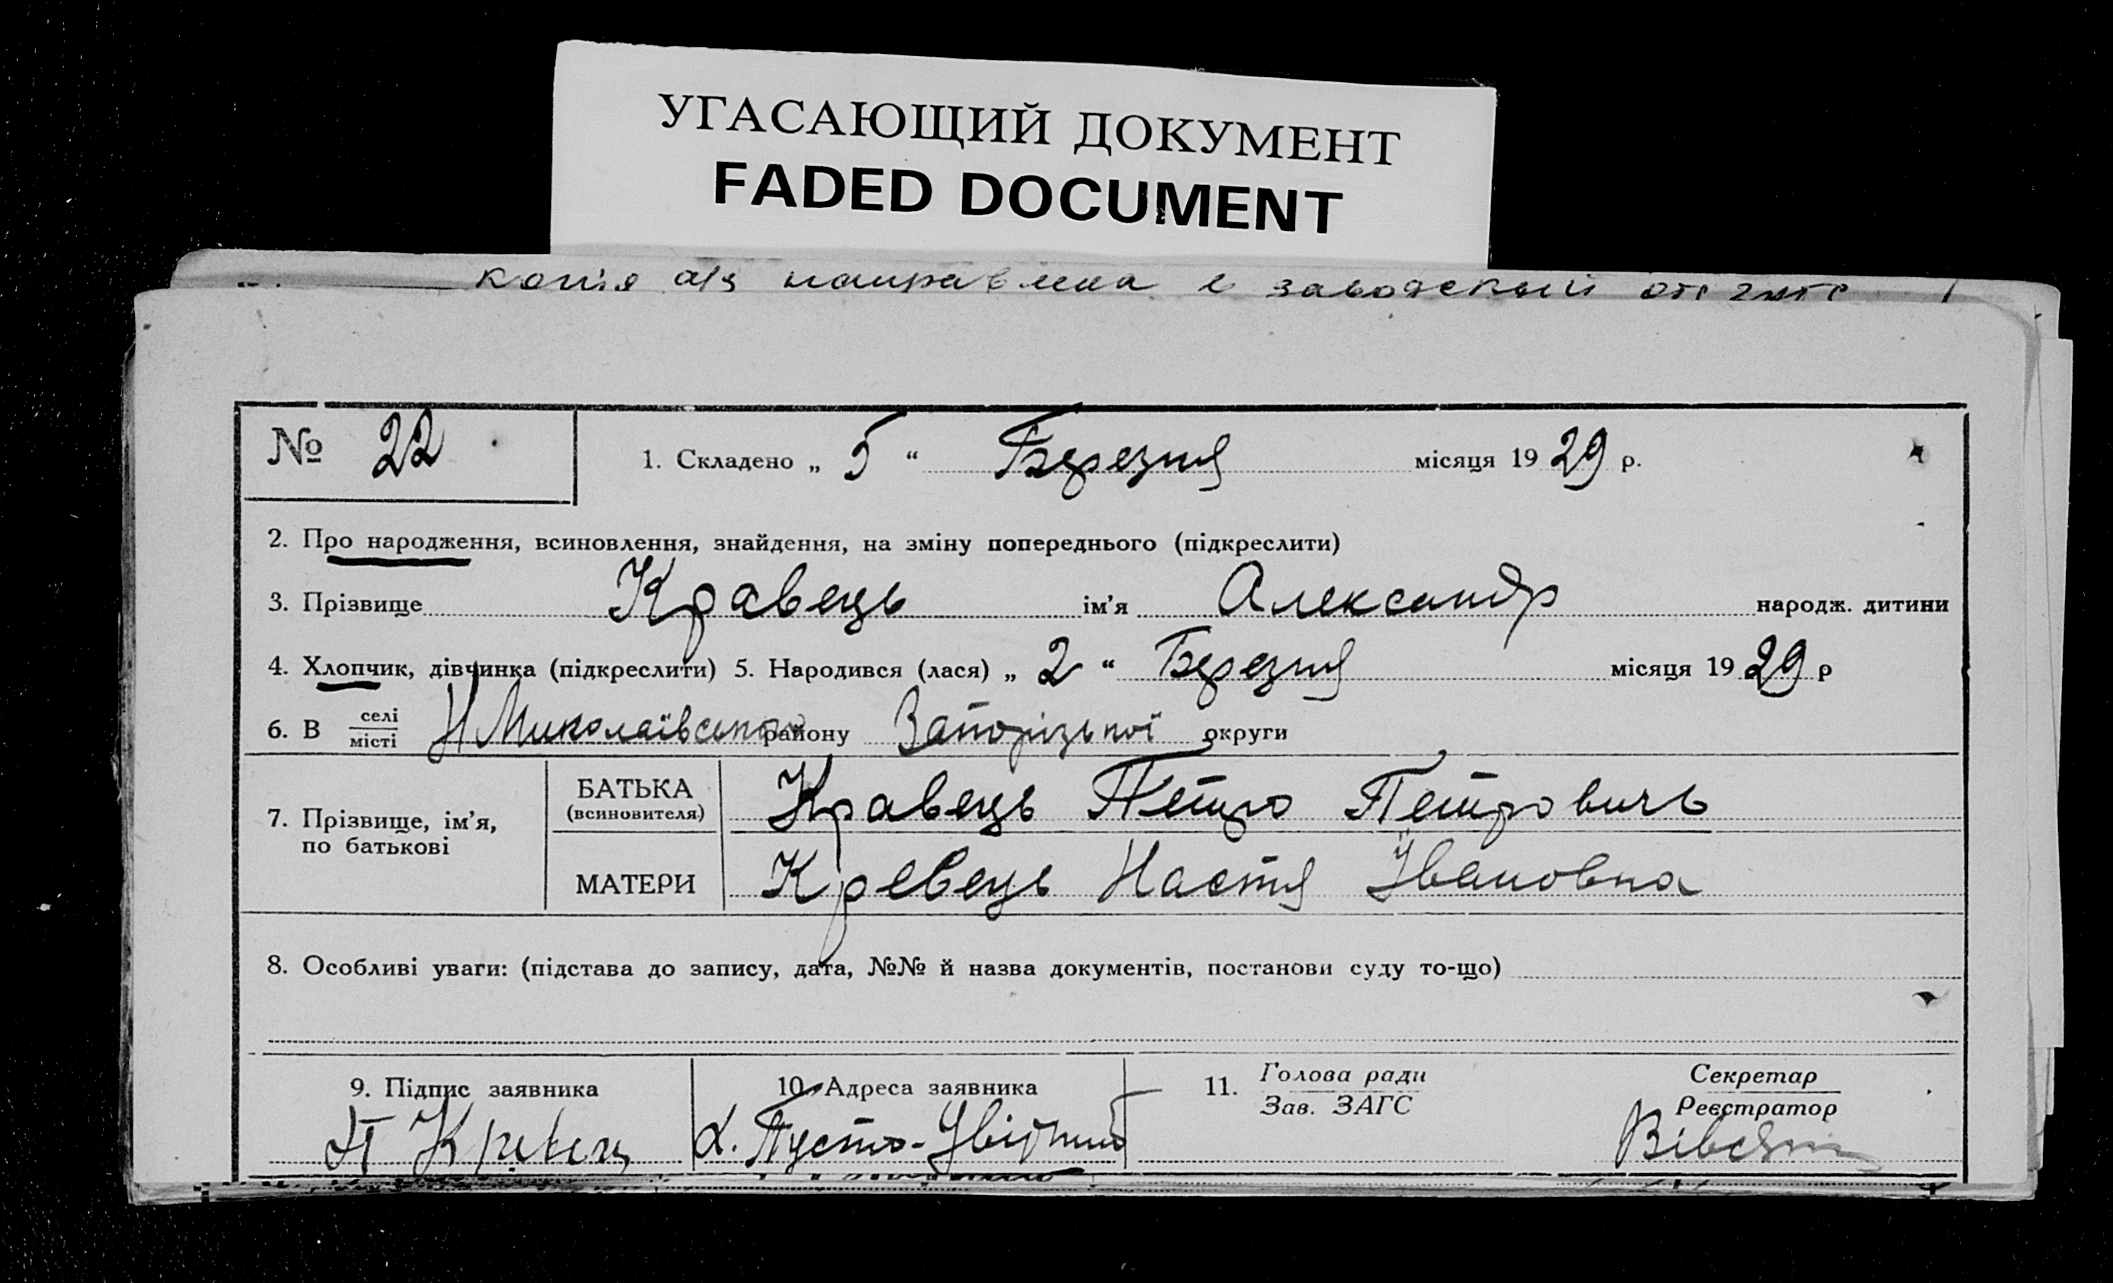 УГАСАЮЩИЙ ДОКУМЕНТ
FADED DOCUMENT
копия а/з направлена в заводский отг
№ 22
1. Складено „ 5 “ Березня місяця 19 29 р.
2. Про народження, всиновлення, знайдення, на зміну попереднього (підкреслити)
3. Прізвище Кравець ім’я Александр народж. дитини
4. Хлопчик, дівчинка (підкреслити) 5. Народився (лася) „ 2 “ Березня місяця 19 29 р
6. В селі місті Н Миколаївського району Запорізької округи
7. Прізвище, ім’я, по батькові
БАТЬКА (всиновителя) Кравець Петро Петровичь
МАТЕРИ Кревець Настя Івановна
8. Особливі уваги: (підстава до запису, дата, №№ й назва документів, постанови суду то-що)
9. Підпис заявника
10. Адреса заявника
11. Голова ради
Зав. ЗАГС
Секретар
Реєстратор
П Кревец
х. Пусто-